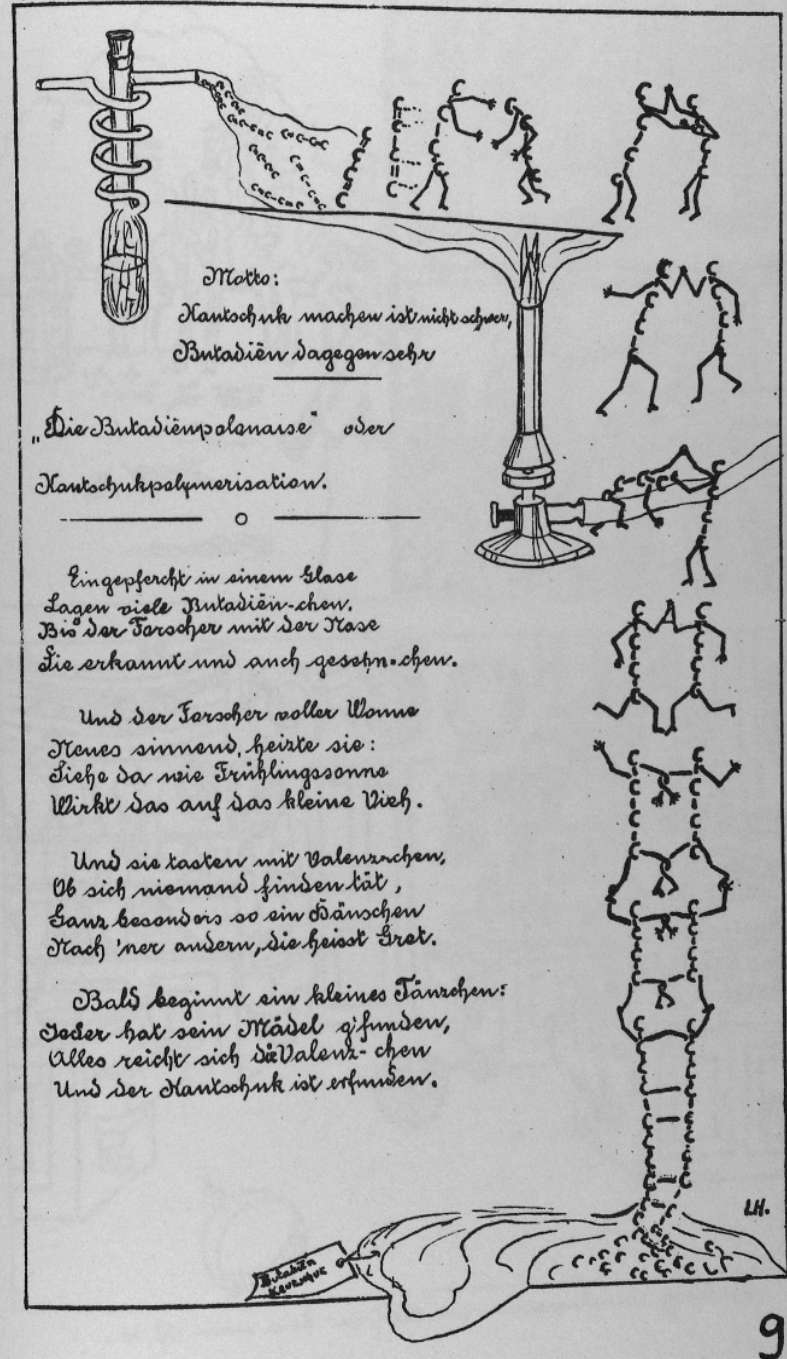 Motto:
Kautschuk machen ist nicht schwer,
Butadiën dagegen sehr
„Die Butadiënpolonaise" oder
Kautschukpolymerisation.
Eingepfercht in einem Glase
Lagen viele Butadiën-chen.
Bis der Forscher mit der Nase
Sie erkannt und auch gesehn-chen.
Und der Forscher voller Wonne
Neues sinnend, heizte sie:
Siehe da wie Frühlingssonne
Wirkt das auf das kleine Vieh.
Und sie tasten mit Valenzchen,
Ob sich niemand finden tät,
Ganz besonders so ein Hänschen
Nach 'ner andern, die heisst Gret.
Bald beginnt ein kleines Tänzchen:
Jeder hat sein Mädel g'funden,
Alles reicht sich die Valenz-chen
Und der Kautschuk ist erfunden.
LH.
Butadiën
Kautschuk
9